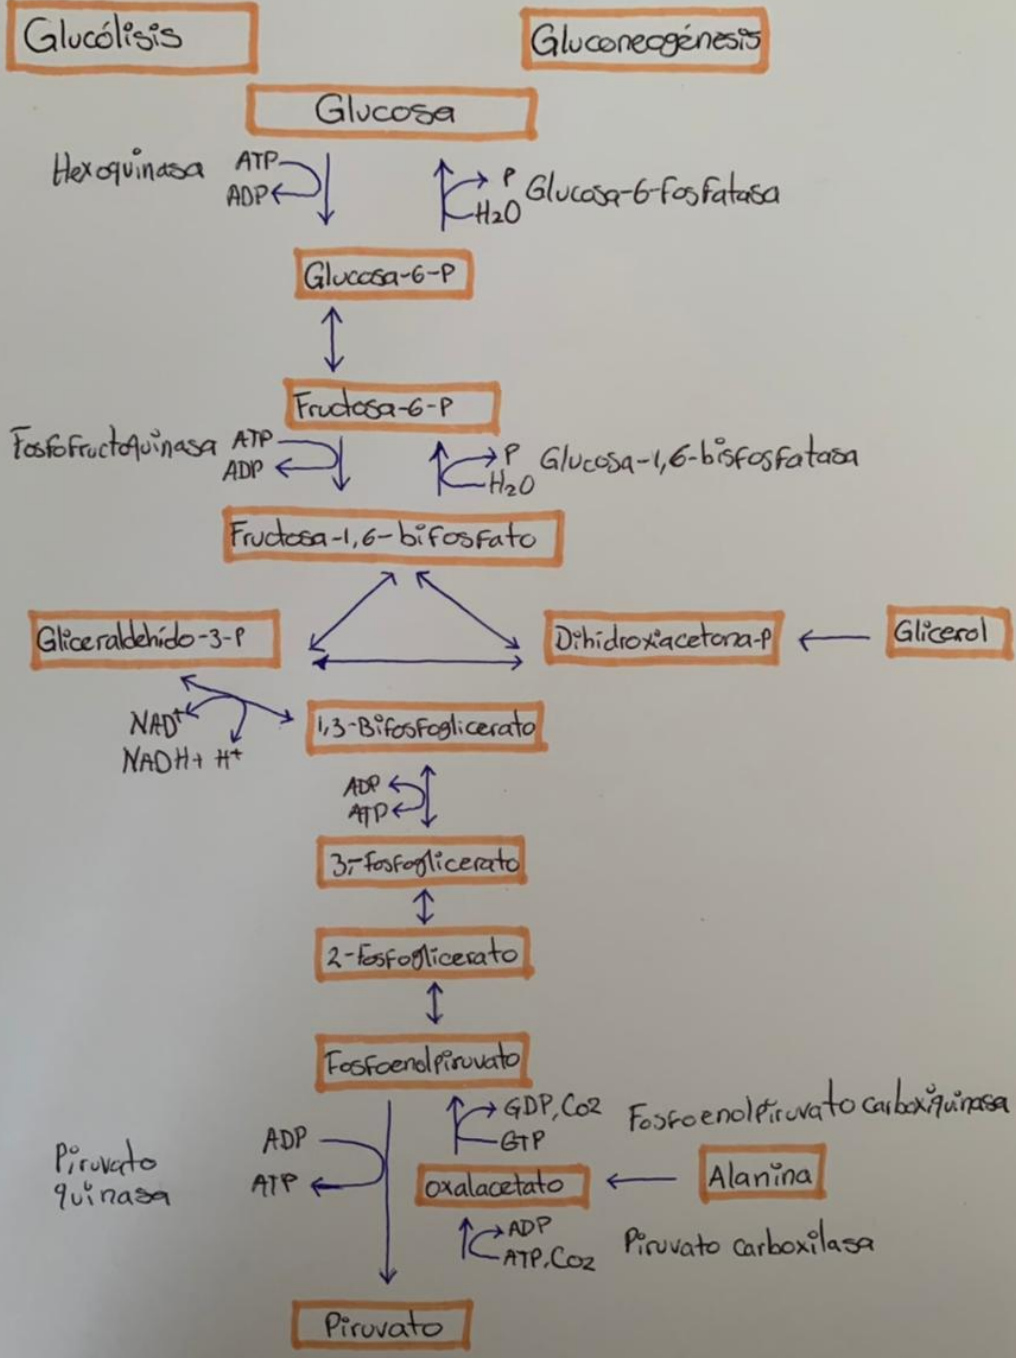 Glucólisis
Gluconeogénesis
Glucosa
Hexoquinasa
ATP
ADP
P
H2O
Glucosa-6-fosfatasa
Glucosa-6-P
Fructosa-6-P
Fosfofructoquinasa
ATP
ADP
P
H2O
Glucosa-1,6-bisfosfatasa
Fructosa-1,6-bifosfato
Gliceraldehído-3-P
Dihidroxiacetona-P
Glicerol
NAD+
NADH+ H+
1,3-Bifosfoglicerato
ADP
ATP
3,-fosfoglicerato
2-fosfoglicerato
Fosfoenolpiruvato
GDP,Co2
GTP
Fosfoenolpiruvato carboxiquinasa
Piruvato
quinasa
ADP
ATP
oxalacetato
Alanina
ADP
ATP,Co2
Piruvato carboxilasa
Piruvato